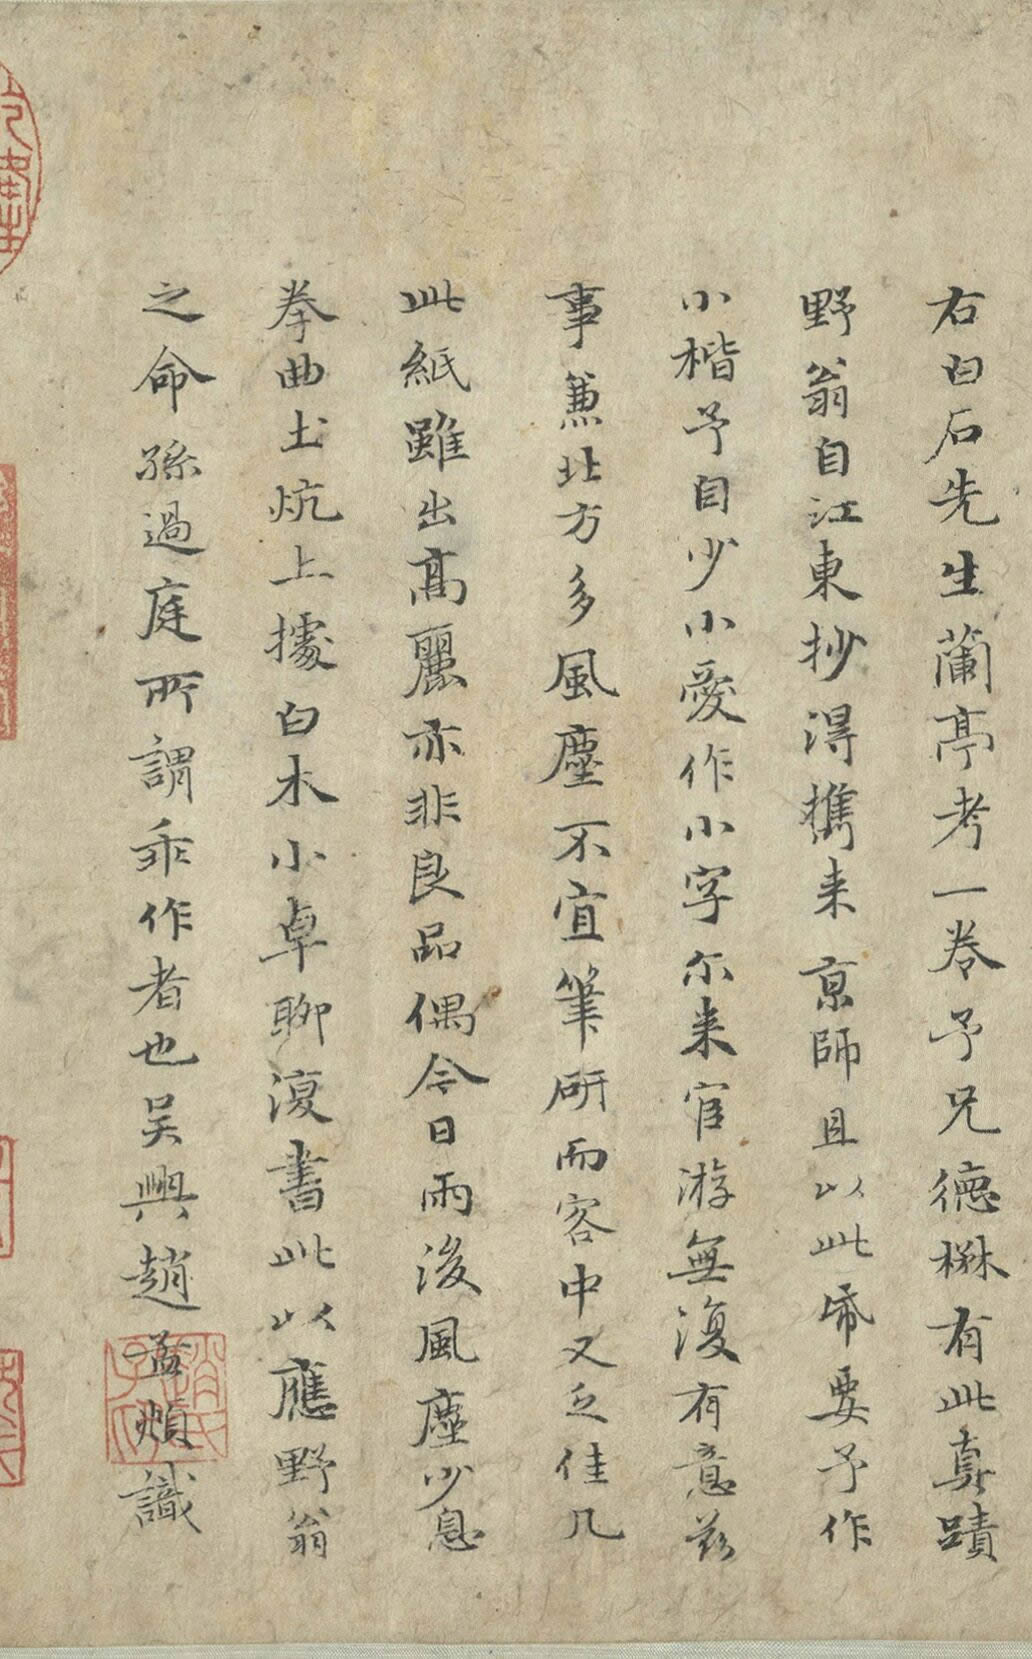 右白石先生蘭亭考一卷予兄德楙有此真蹟
野翁自江東抄淂携来京師且以此帋要予作
小楷予自少小愛作小字尔来宦游無復有意兹
事兼北方多風塵不宜筆研而客中又乏佳几
此紙雖出高麗亦非良品偶今日雨後風塵少息
拳曲土炕上據白木小卓聊復書此以應野翁
之命孫過庭所謂乖作者也吴興趙孟頫識
趙氏子昂